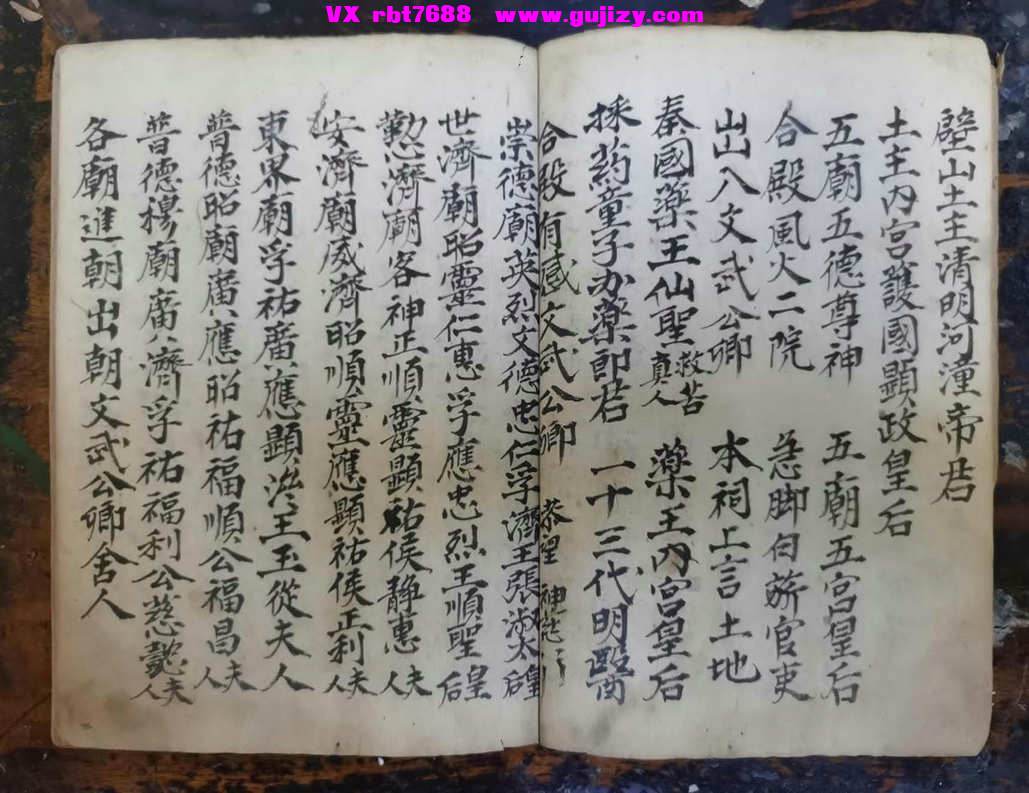 VX rbt7688 www.gujizy.com
壁山土主清明河潼帝君
土主內宮護國顯政皇后
五廟五德尊神 五廟五宮皇后
合殿風火二院 急脚白旂官吏
出入文武公卿 本祠上言土地
秦國藥王仙聖救苦真人 藥王內宮皇后
採药童子办藥郎君 一十三代明醫
合殿有感文武公卿 恭望
崇德廟英烈文德忠仁孚濟王張淑太皇后
世濟廟昭靈仁惠孚應忠烈王順聖皇后
懃濟廟客神正順靈顯祐侯靜惠夫人
安濟廟威濟昭順靈應顯祐侯正利夫人
東界廟孚祐廣應顯濟王玉從夫人
普德昭廟廣應昭祐福順公福昌夫人
普德穆廟廣濟孚祐福利公慈懿夫人
各廟進朝出朝文武公卿舍人